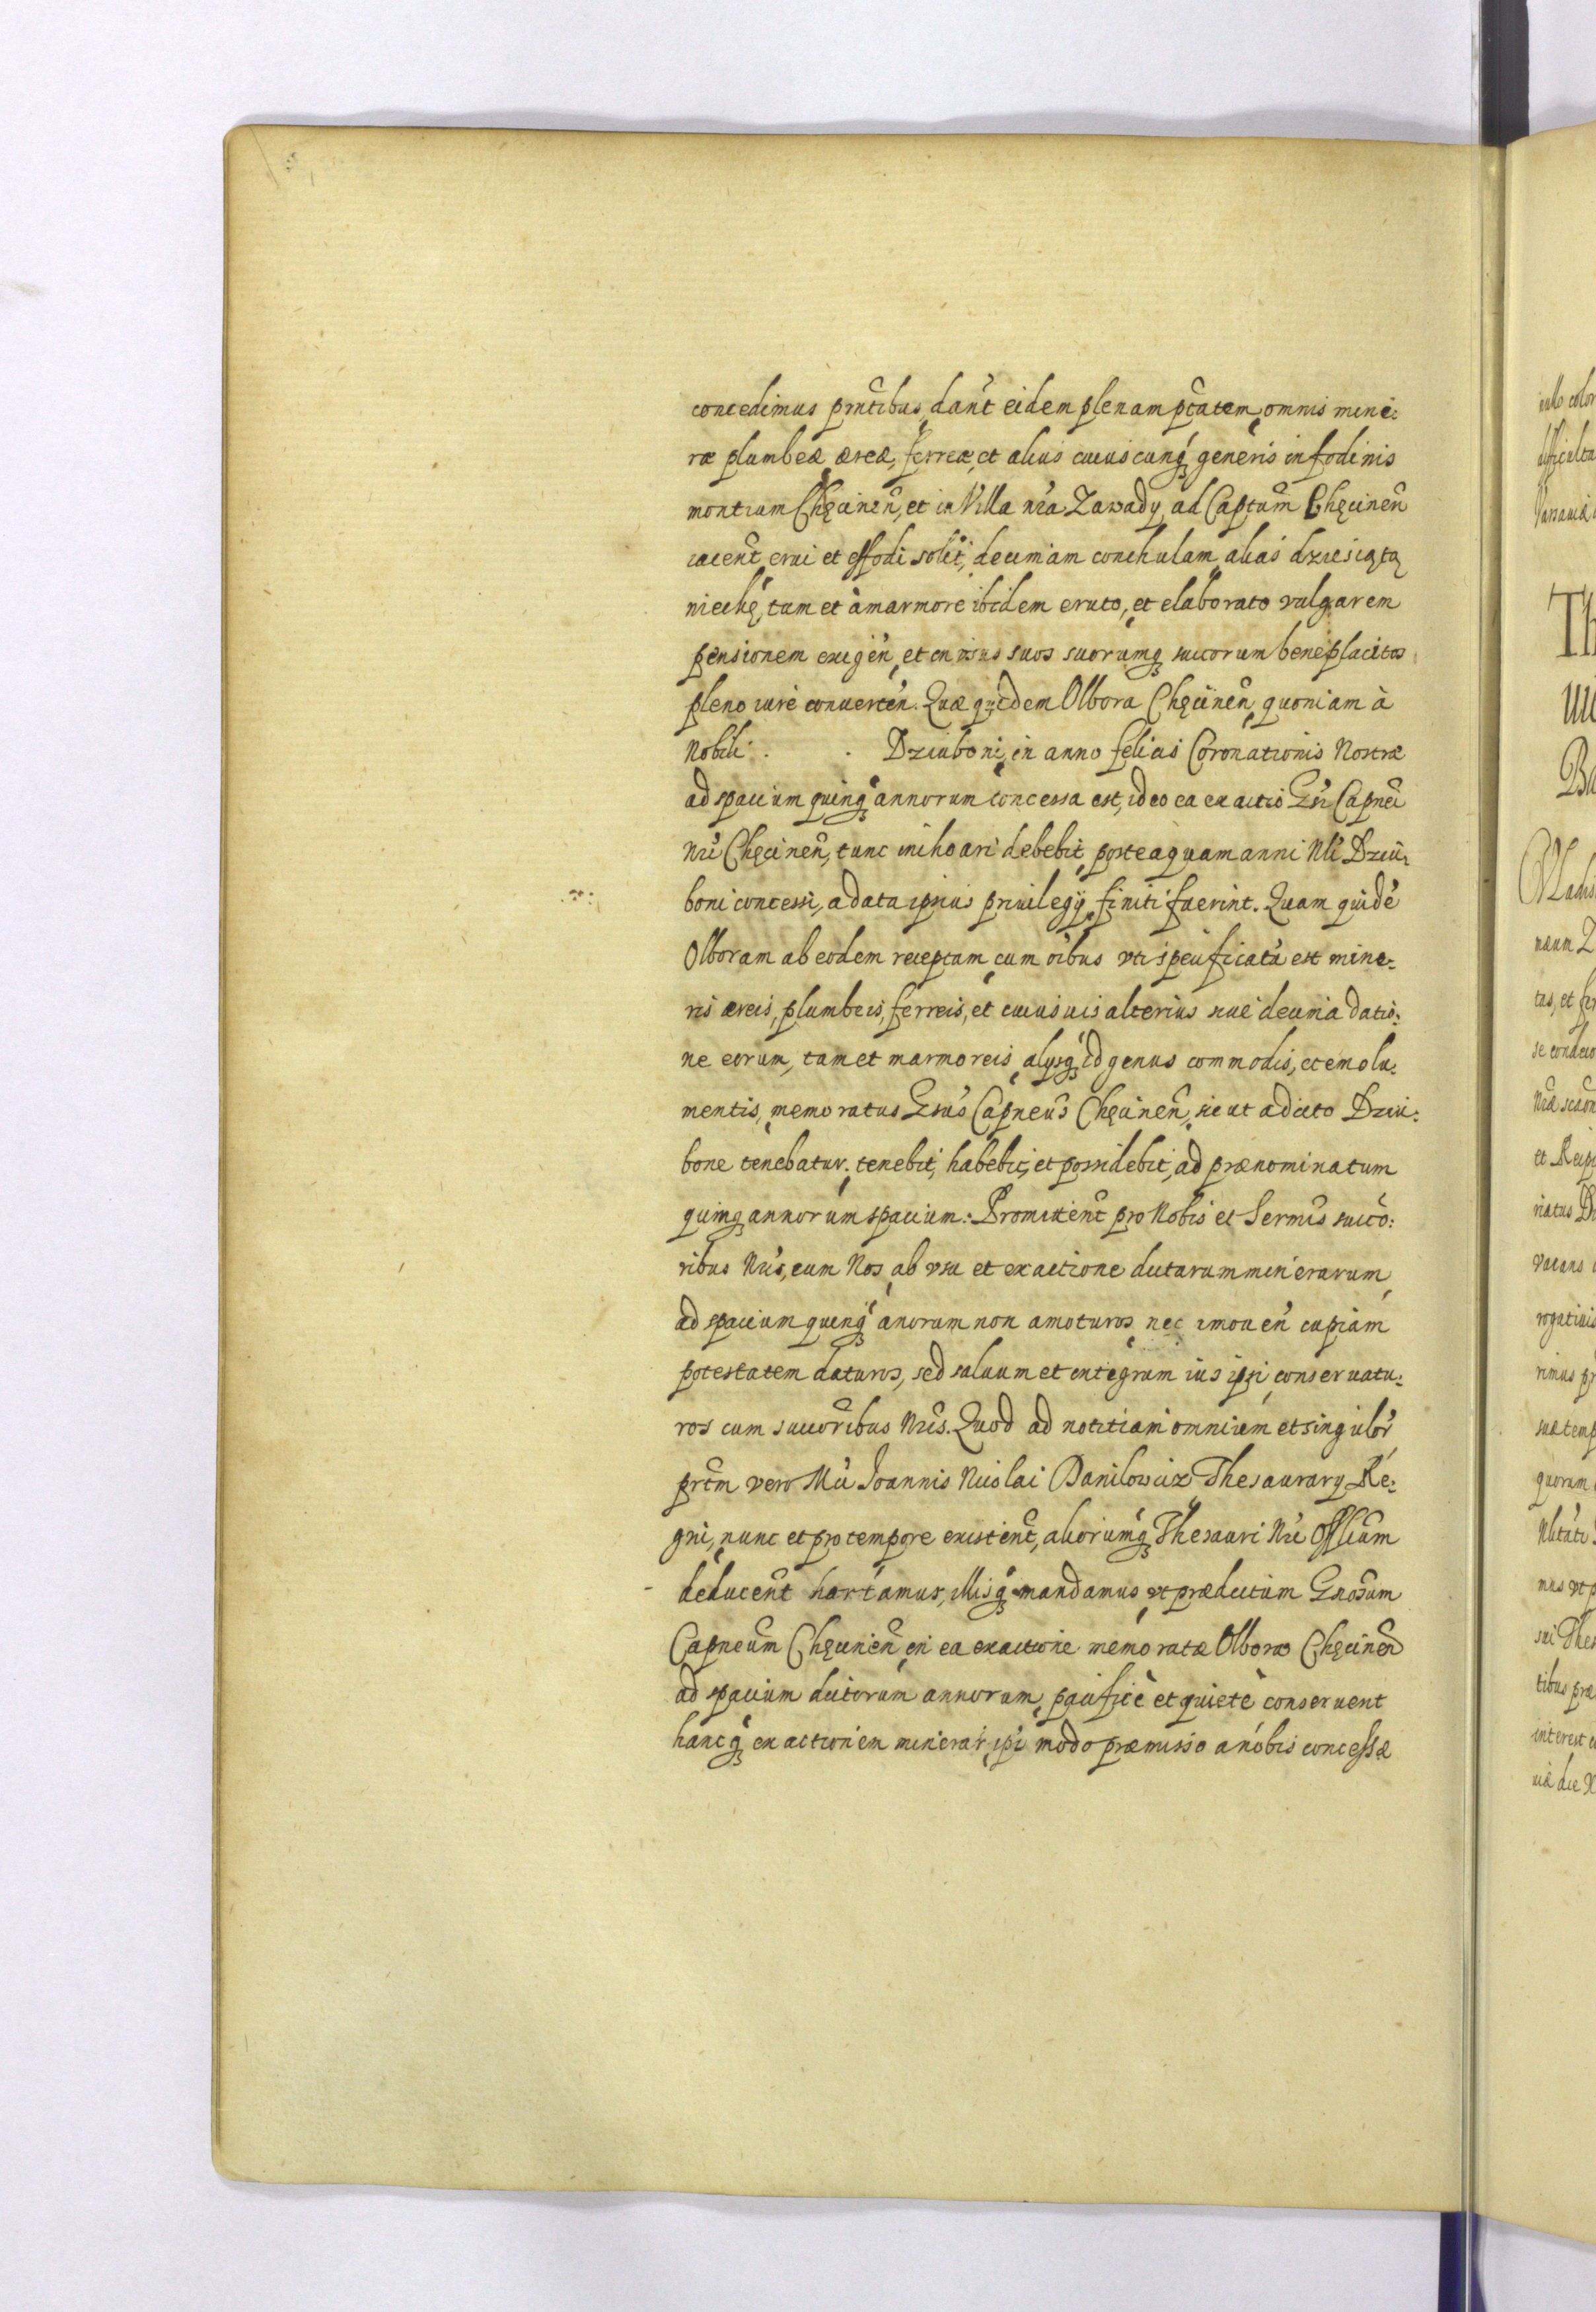 concedimus pñtibus, dañt eidem plenam ptãtem, omnis mine:
ræ plumbeæ, æreæ, ferreæ, et alius cuiuscunq generis in fodinis
montium Chęcineñ, et in Villa nra Zawady ad Captum Chęcineñ
iacent, erui et effodi solit, decimam conchulam, alias dziesiątą
nieckę, tum et à marmore ibidem eruto, et elaborato vulgarem
pensionem exigeñ, et in usus suos suorumq succorum beneplacitos
pleno iure conuerteñ. Quæ quidem Olbora Chęcineñ, quoniam à
Nobili . . Dziuboni, in anno felicis Coronationis Nostræ
ad spacium quinq annorum concessa est, ideo ea exactio Gsi Capnei
Nri Chęcineñ, tunc inchoari debebit, posteaquam anni Nli Dziu:
boni concessi, a data ipsius priuilegij, finiti fuerint. Quam quidẽ
Olboram ab eodem receptam, cum oibus vti specificata est mine:
ris æreis, plumbeis, ferreis, et cuiusuis alterius siue decima datio:
ne eorum, tam et marmoreis, alysq id genus commodis, et emolu:
mentis, memoratus Gsus Capneus Chęcineñ, sicut a dicto Dziu:
bone tenebatur, tenebit, habebit, et possidebit, ad prænominatum
quinq annorum spacium: Promitteñt pro Nobis et Sermis succo:
ribus Nris, eum Nos, ab vsu et exactione dictarum minerarum,
ad spacium quinq anorum non amoturos, nec imoueñ cupiam
potestatem daturos, sed saluum et integrum ius ipsi, conseruatu:
ros cum succoribus Nris. Quod ad notitiam omnium et singulor,
prtm vero Mci Joannis Nicolai Danilowicz Thesaurarij Re:
gni, nunc et pro tempore existent, aliorumq Thesauri Nri Offlium
deducent hortamur, illisq mandamus, vt prædictum Gnosum
Capneum Chęcineñ, in ea exactione memoratæ Olboræ Chęcineñ
ad spacium dictorum annorum, pacificè et quietè conseruent
hancq exactionem minerar, ipi modo præmisso a nobis concessæ